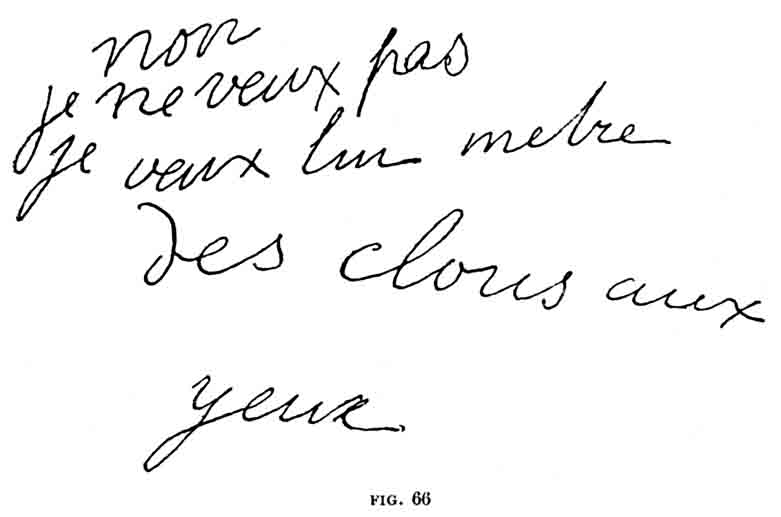 non
je ne veux pas
je veux lui metre
des clous aux
yeux
FIG. 66